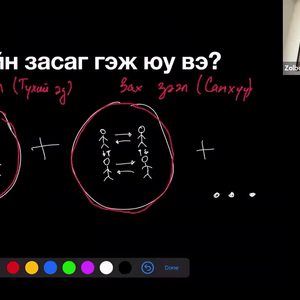 йн засаг гэж юу вэ?
л (Тухай эд) Зах зээл (Санхүү
Zolb
Done